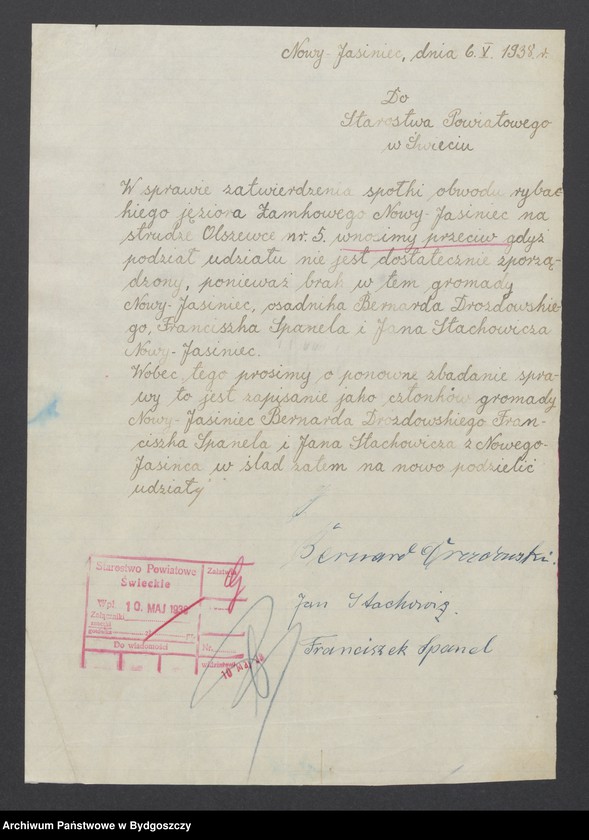 Nowy-Jasiniec, dnia 6. V. 1938. r.
Do
Starostwa Powiatowego
w Świeciu
W sprawie zatwierdzenia spółki obwodu rybac
kiego jęziora Zamkowego Nowy-Jasiniec na
strudze Olszewce nr. 5. wnosimy przeciw gdyż
podział udziału nie jest dostatecznie zporzą-
dzony, ponieważ brak w tem gromady
Nowy-Jasiniec, osadnika Bernarda Drozdowskie-
go, Franciszka Spanela i Jana Stachowicza
Nowy-Jasiniec.
Wobec tego prosimy o ponowne zbadanie spra-
wy to jest zapisanie jako członków gromady
Nowy-Jasiniec Bernarda Drozdowskiego Fran-
ciszka Spanela i Jana Stachowicza z Nowego-
Jasińca w ślad zatem na nowo podzielić
udziały
Bernard
Jan Stachowicz.
Franciszek Spanel
Starostwo Powiatowe
Świeckie
Wpł. 10. MAJ 1938
Załączniki
Do wiadomości
Nr.
10 MAJ 38
Archiwum Państwowe w Bydgoszczy